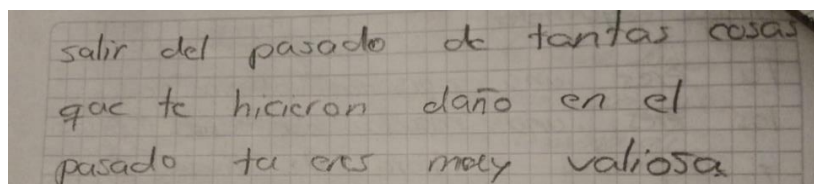 salir del pasado de tantas cosas
que te hicieron daño en el
pasado tu eres muy valiosa